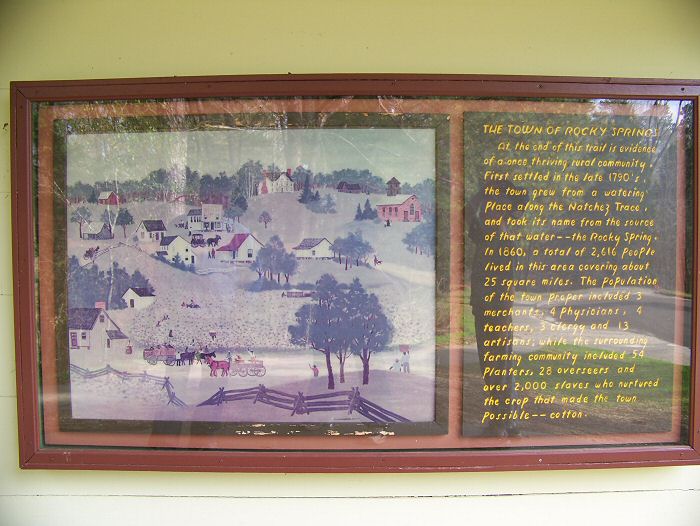 THE TOWN OF ROCKY SPRINGS
At the end of this trail is evidence
of a once thriving rural community.
First settled in the late 1790's,
the town grew from a watering
place along the Natchez Trace,
and took its name from the source
of that water--the Rocky Spring.
In 1860, a total of 2,616 people
lived in this area covering about
25 square miles. The population
of the town proper included 3
merchants, 4 physicians, 4
teachers, 3 clergy and 13
artisans; while the surrounding
farming community included 54
planters, 28 overseers and
over 2,000 slaves who nurtured
the crop that made the town
possible--cotton.